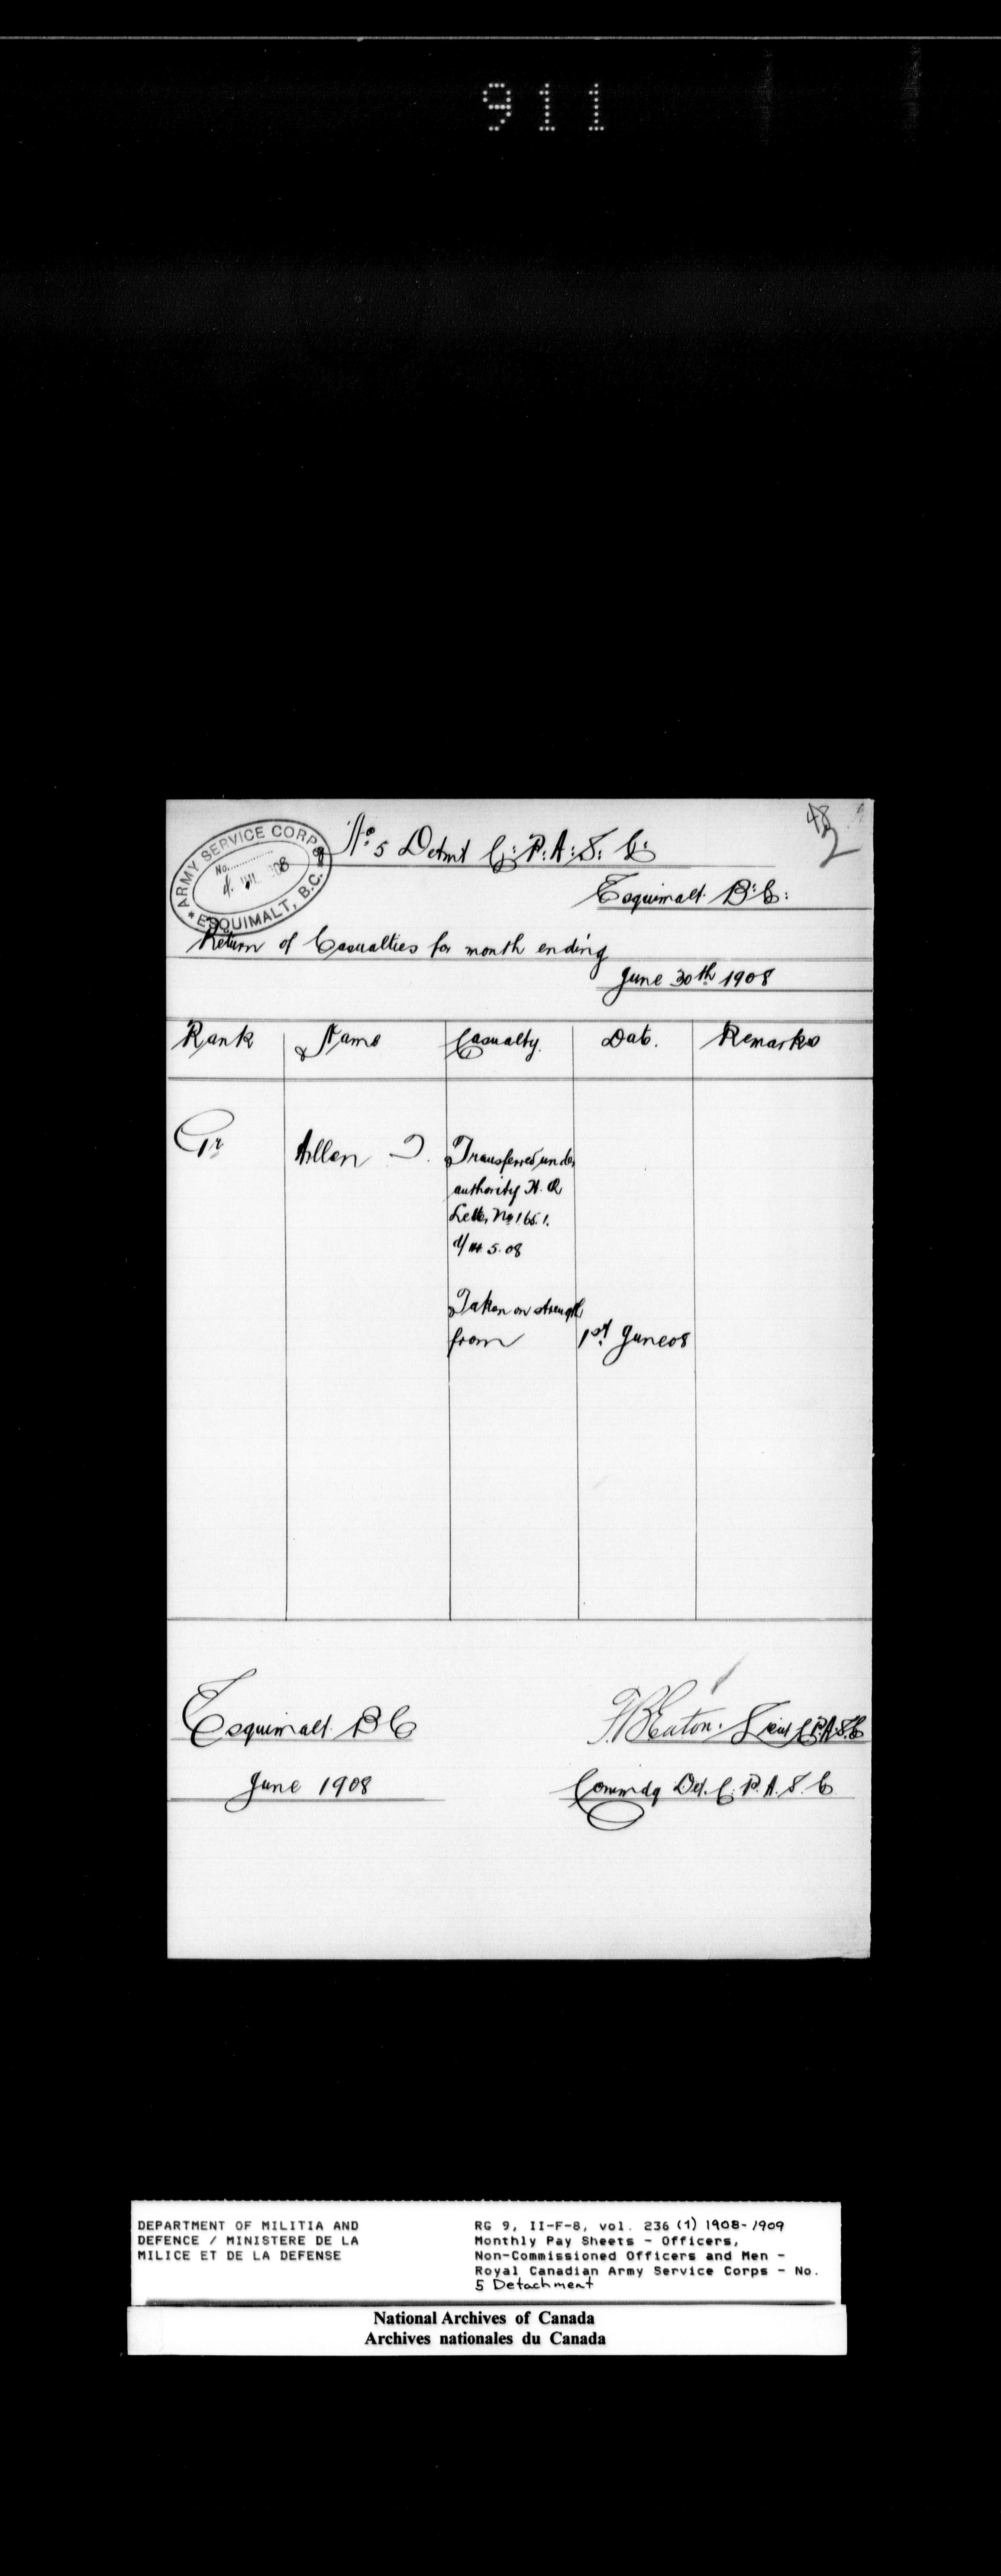 911
48
2
ARMY SERVICE CORPS
No.
4 JUL 1908
* ESQUIMALT, B.C. *
No. 5 Detmt C: P: A: S: C:
Esquimalt B: C:
Return of Casualties for month ending
June 30th 1908
Rank Name Casualty Date. Remarks
Gr Allen T. Transferred under
authority H. Q.
Letter No 165.1.
5.08
Taken on strength
from 1st June 08
Esquimalt B C F. B. Eaton. Lieut C.P.A.S.C
June 1908 Commdg Det. C. P. A. S. C
DEPARTMENT OF MILITIA AND
DEFENCE / MINISTERE DE LA
MILICE ET DE LA DEFENSE
RG 9, II-F-8, vol. 236 (1) 1908-1909
Monthly Pay Sheets - Officers,
Non-Commissioned Officers and Men -
Royal Canadian Army Service Corps - No.
5 Detachment
National Archives of Canada
Archives nationales du Canada